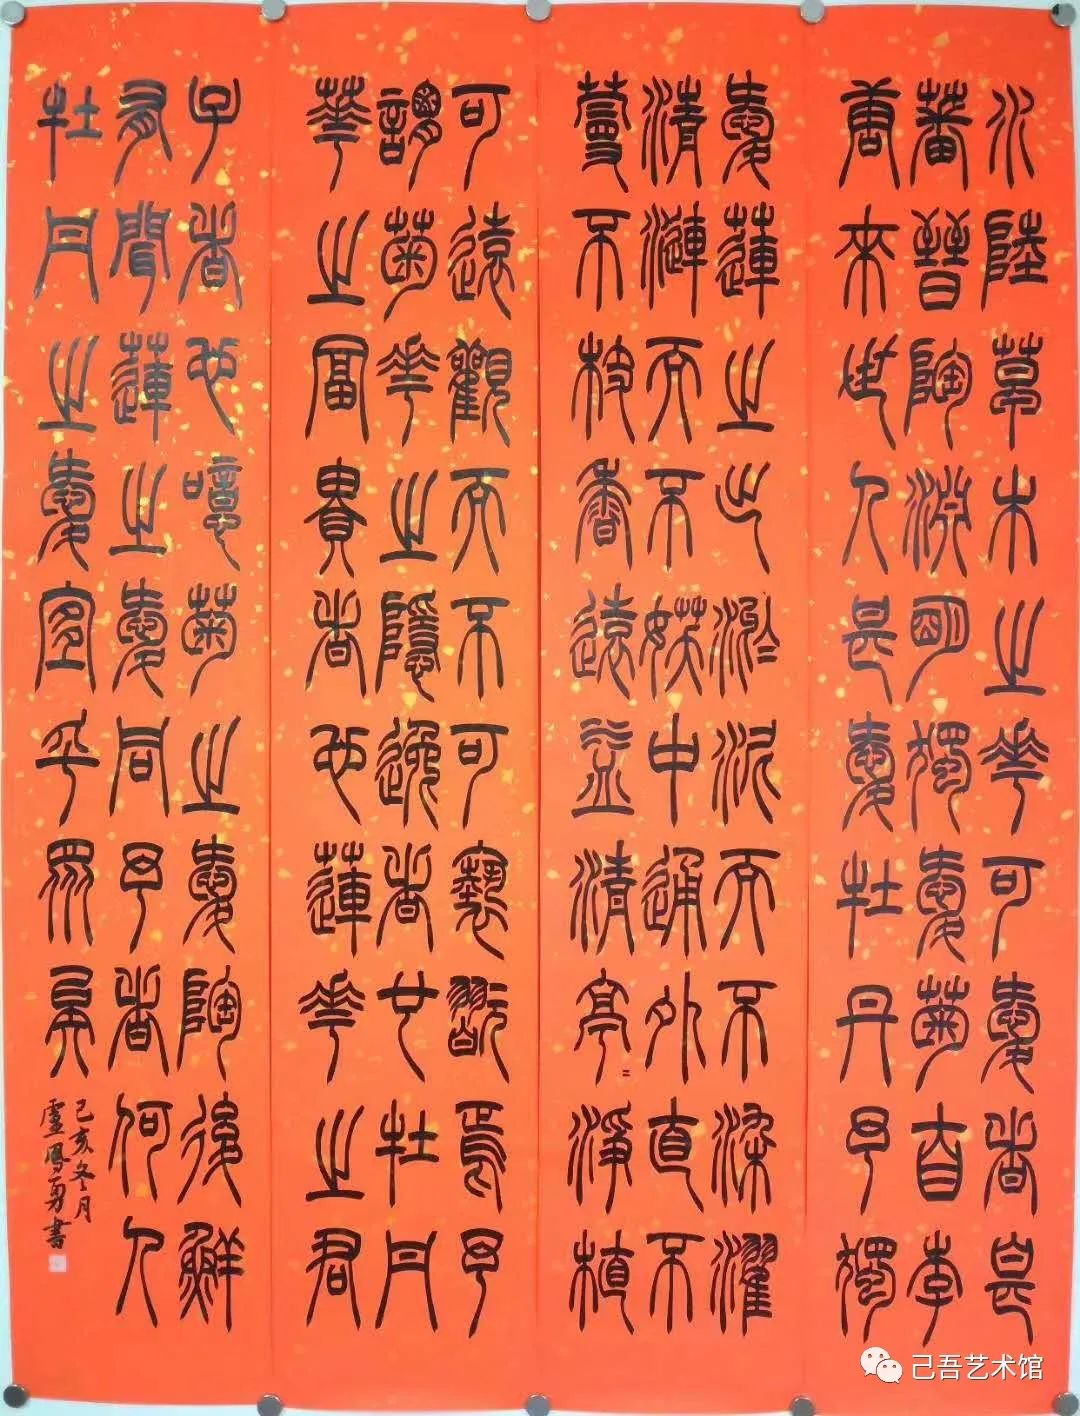 水陸草木之花可愛者甚
蕃晉陶淵明獨愛菊自李
唐來世人甚愛牡丹予獨
愛蓮之出淤泥而不染濯
清漣而不妖中通外直不
蔓不枝香遠益清亭〻淨植
可遠觀而不可褻翫焉予
謂菊花之隱逸者也牡丹
華之富貴者也蓮花之君
子者也噫菊之愛陶後鮮
有聞蓮之愛同予者何人
牡丹之愛宜乎眾矣
己亥冬月
盧風勇書
己吾艺术馆